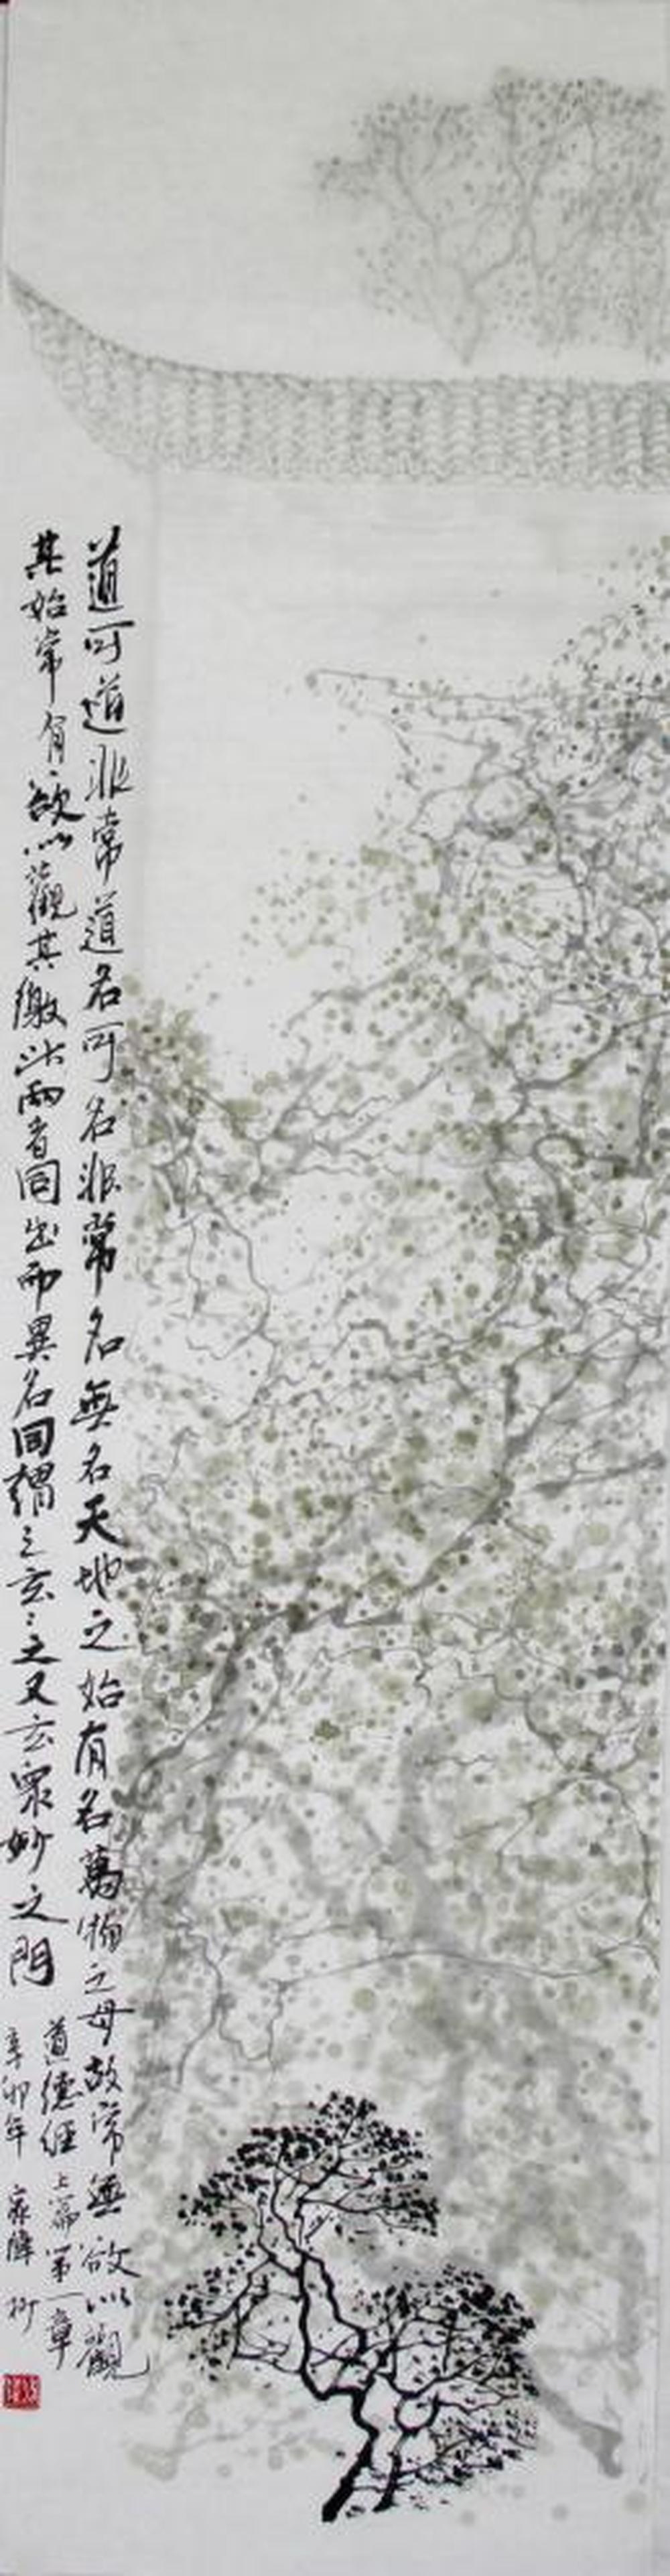 道可道非常道名可名非常名無名天地之始有名萬物之母故常無欲以觀
其始常有欲以觀其徼此兩者同出而異名同謂之玄玄之又玄眾妙之門
道德經上篇第一章
辛卯年